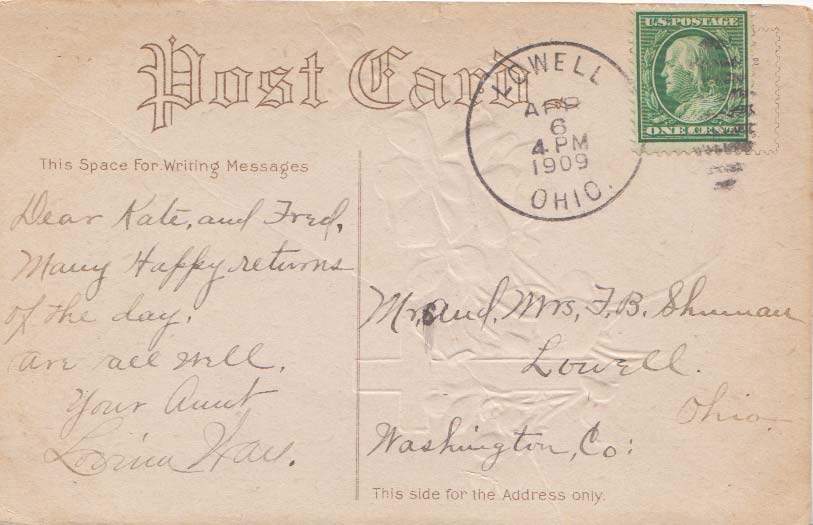 Post Card
U.S. POSTAGE
ONE CENT
LOWELL
APR
6
4 PM
1909
OHIO.
This Space For Writing Messages
Dear Kate, and Fred,
Many Happy returns
of the day.
are all well.
Your Aunt
Mr. and. Mrs, F. B. Shuman
Lowell.
Ohio.
Washington, Co:
This side for the Address only.